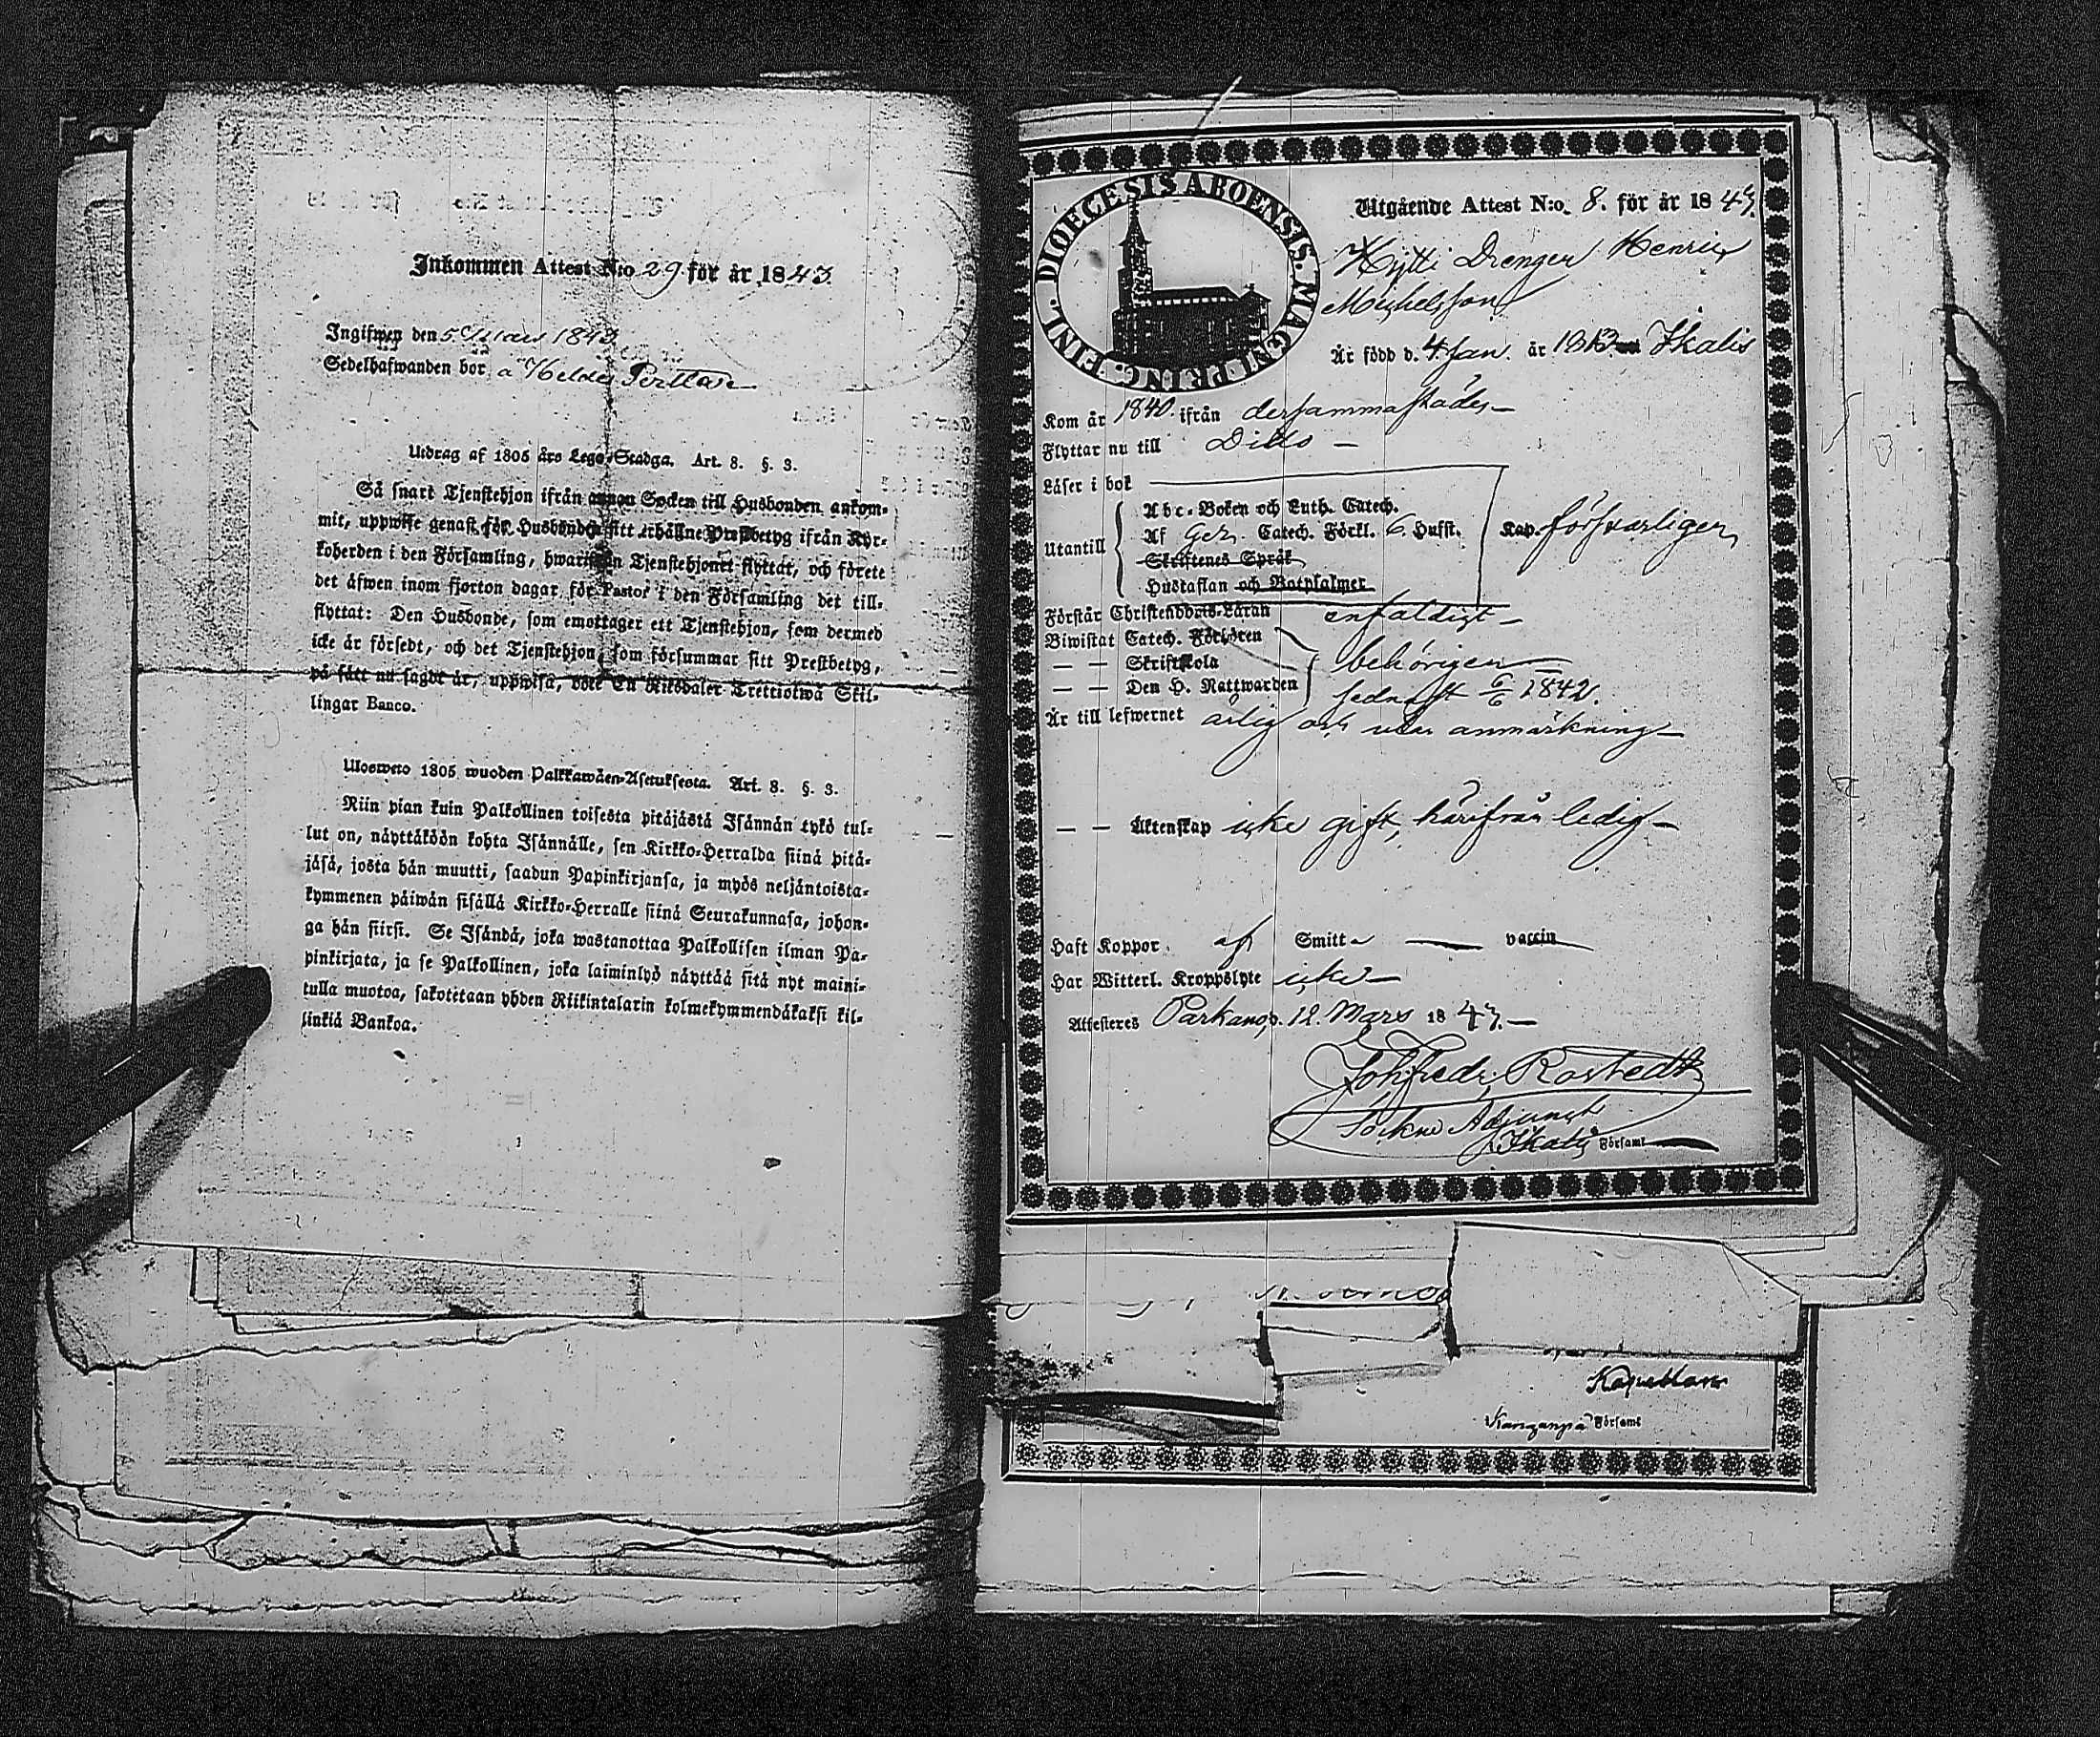 Inkommen Attest N:o 29 för år 1843.
Ingifwen den 5 Mars 1843
Sedelhafwanden bor à Perttu
Utdrag af 1805 års Lego-Stadga. Art. 8. §. 3.
Så snart Tjenstehjon ifrån annan Socken till Husbonden ankom-
mit, uppwise genast för Husbonden sitt erhållne Prestbetyg ifrån Kyr-
koherden i den Församling, hwarifrån Tjenstehjonet flyttat, och förete
det äfwen inom fjorton dagar för Pastor i den Församling det till-
flyttat: Den Husbonde, som emottager ett Tjenstehjon, som dermed
icke är försedt, och det Tjenstehjon, som försummar sitt Prestbetyg,
på sätt nu sagdt är, uppwisa, böte En Riksdaler Trettiotwå Skil-
lingar Banco.
Ulosweto 1805 wuoden Palkkawäen-Asetuksesta. Art. 8. §. 3.
Niin pian kuin Palkollinen toisesta pitäjästä Isännän tykö tul-
lut on, näyttäköön kohta Isännälle, sen Kirkko-Herralda siinä pitä-
jäsä, josta hän muutti, saadun Papinkirjansa, ja myös neljäntoista-
kymmenen päiwän sisällä Kirkko-Herralle siinä Seurakunnasa, johon-
ga hän siirsi. Se Isändä, joka wastanottaa Palkollisen ilman Pa-
pinkirjata, ja se Palkollinen, joka laiminlyö näyttää sitä nyt maini-
tulla muotoa, sakotetaan yhden Riikintalarin kolmekymmendäkaksi kil-
linkiä Bankoa.
DIOECESIS ABOENSIS. MAGNI PRINC. FINL.
Utgående Attest N:o. 8. för år 1843.
Drengen Henric
Michelsson
Är född d. 4 Jan. år 1813 Ikalis
Kom år 1840. ifrån dersammastädes
Flyttar nu till Ditto
Läser i bok
Utantill
Abc-Boken och Luth. Catech.
Af Gez. Catech. Förkl. 6. Hufst.
Skriftenes Språk
Hustaflan och Botpsalmer
Kap. försvarligen
Förstår Christendoms-Läran enfaldigt
Biwistat Catech. Förhören
— — Skriftskola behörigen
— — Den H. Nattwarden sednast 6/6 1842.
Är till lefwernet ärlig och utan anmärkning
— — Äktenskap icke gift, härifrån ledig
Haft Koppor af Smitta vaccin
Har Witterl. Kroppslyte icke
Attesteres Parkano d. 12. Mars 1843.
Joh. Fredr. Rostedt
Sockne Adjunct
Ikalis Församl
Kapellan
Kanganpä Församl